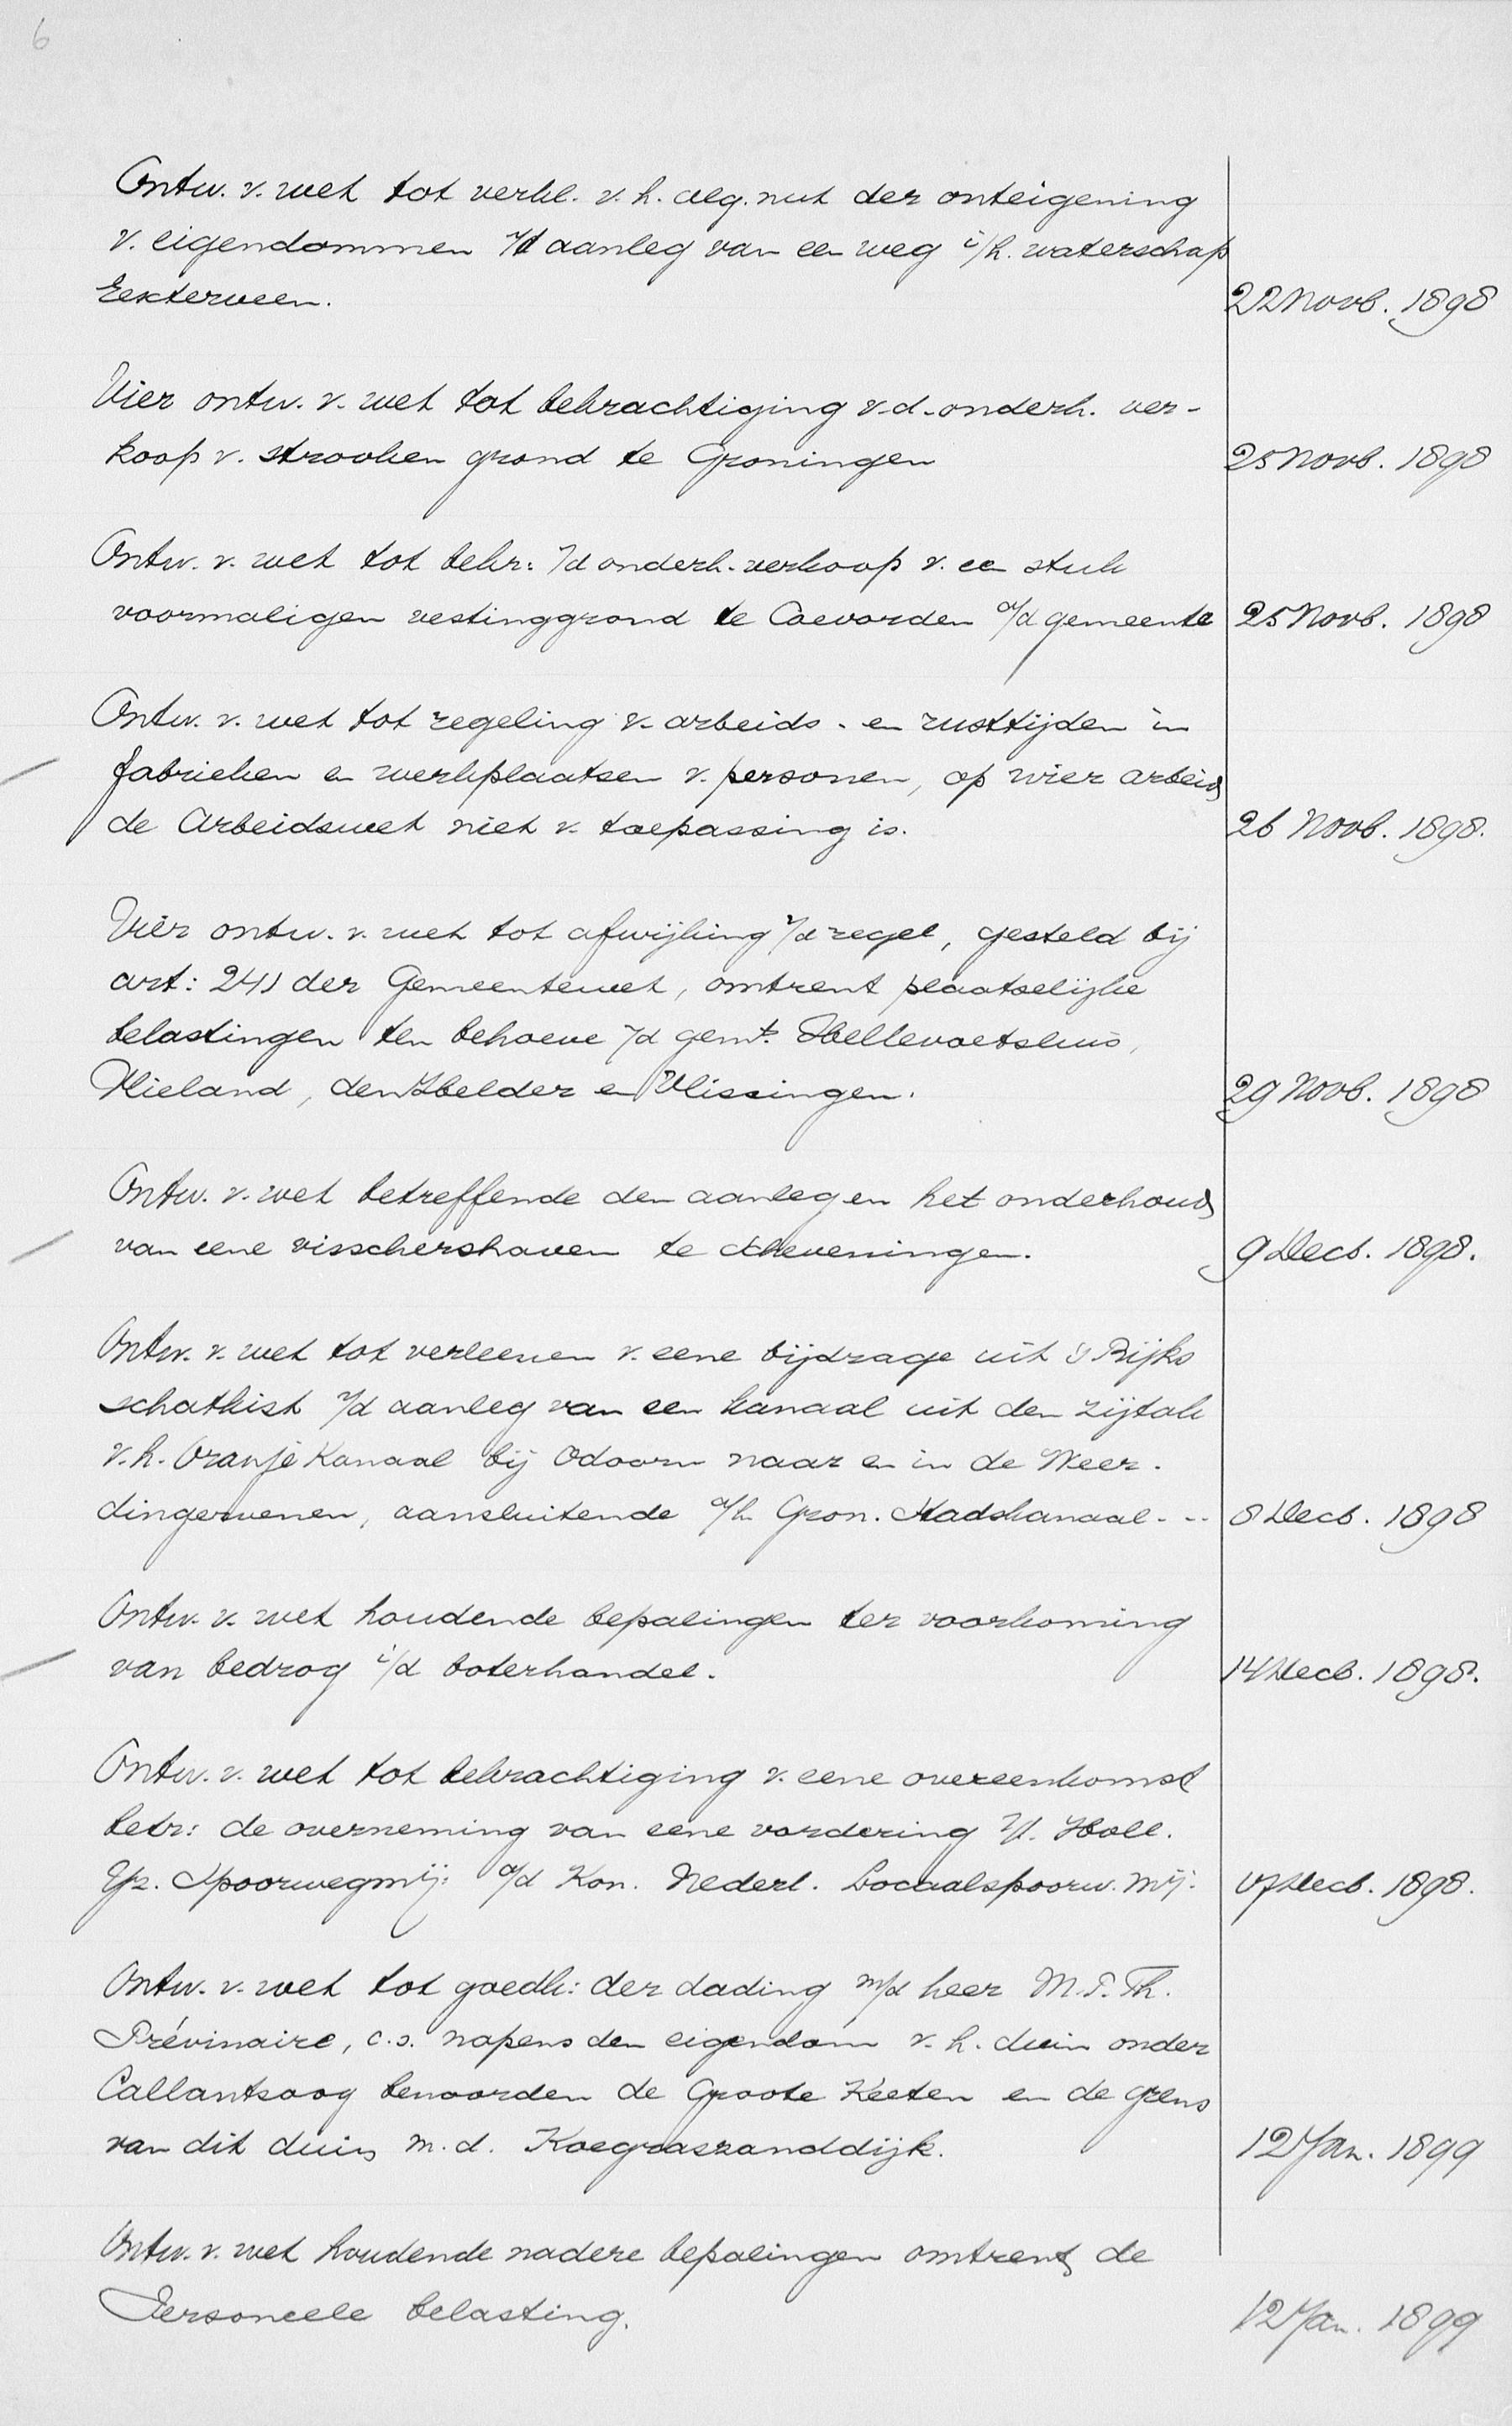 6
Ontw. v. wet tot verkl. v. h. alg. nut der onteigening
v. eigendommen v/d aanleg van een weg i/h. waterschap
Eexterveen. 22 Novb. 1898
Vier ontw. v. wet tot bekrachtiging v. d. onderh. ver-
koop v. strooken grond te Groningen 25 Novb. 1898
Ontw. v. wet tot bekr: v/d onderh. verkoop v. een stuk
voormaligen vestinggrond te Coevorden a/d gemeente 25 Novb. 1898
Ontw. v. wet tot regeling v. arbeids- en rusttijden in
fabrieken en werkplaatsen v. personen, op wier arbeid
de Arbeidswet niet v. toepassing is. 26 Novb. 1898.
Vier ontw. v. wet tot afwijking v/d regel, gesteld bij
art: 241 der Gemeentewet, omtrent plaatselijke
belastingen ten behoeve v/d gemt. Hellevoetsluis,
Vlieland, den Helder en Vlissingen. 29 Novb. 1898
Ontw. v. wet betreffende den aanleg en het onderhoud
van eene visschershaven te Scheveningen. 9 Decb. 1898.
Ontw. v. wet tot verleenen v. eene bijdrage uit 's Rijks
schatkist v/d aanleg van een kanaal uit den zijtak
v. h. Oranje Kanaal bij Odoorn naar en in de Weer-
dingervenen, aansluitende a/h Gron. Stadskanaal - - 8 Decb. 1898
Ontw. v. wet houdende bepalingen ter voorkoming
van bedrog i/d boterhandel. 14 Decb. 1898.
Ontw. v. wet tot bekrachtiging v. eene overeenkomst
betr: de overneming van eene vordering v/d. Holl.
Yz. Spoorwegmij: a/d Kon. Nederl. Locaalspoorw. Mij: 17 Decb. 1898.
Ontw. v. wet tot goedk: der dading m/d heer M. P. Th.
Prévinaire, c.s. nopens den eigendom v. h. duin onder
Callantsoog benoorden de Groote Keeten en de grens
van dit duin m. d. Koegraszanddijk. 12 Jan. 1899
Ontw. v. wet houdende nadere bepalingen omtrent de
Personeele belasting. 12 Jan. 1899